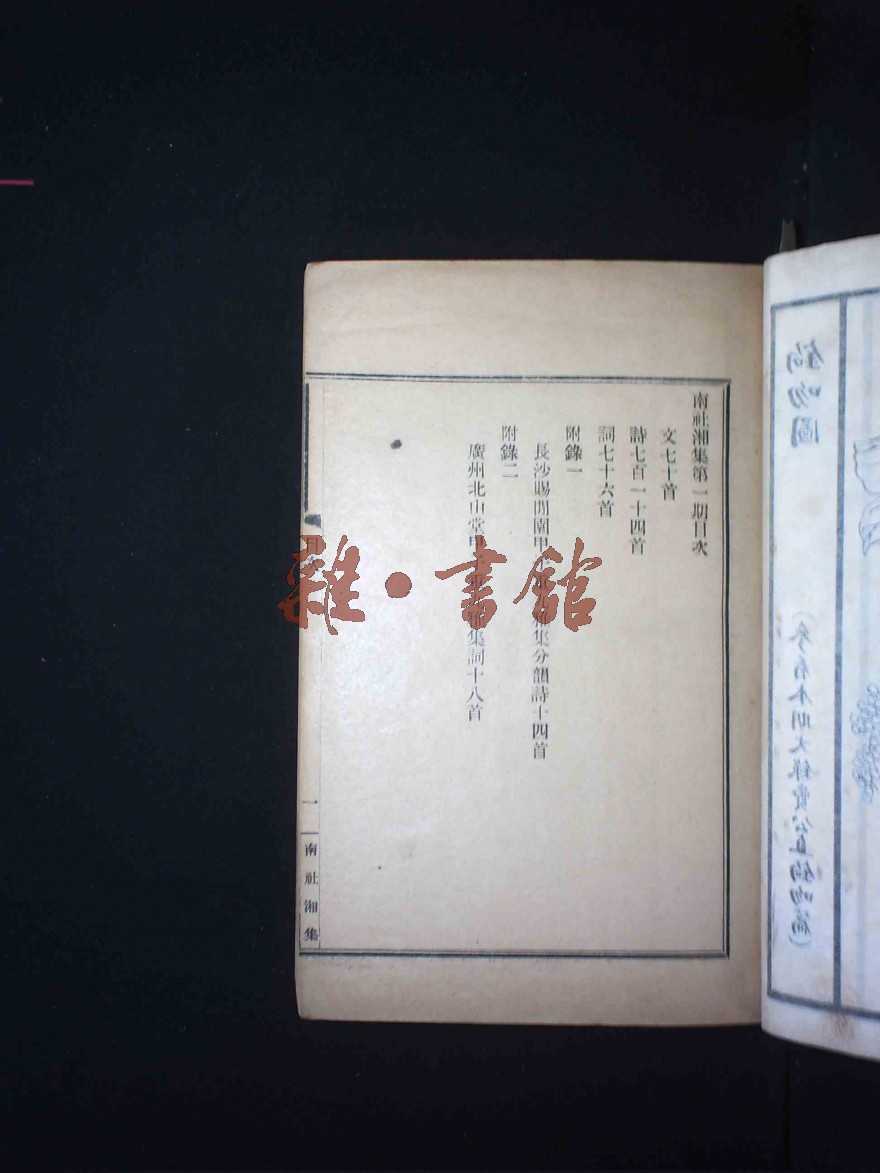 南社湘集第一期目次
文七十首
詩七百一十四首
詞七十六首
附錄一
長沙賜閒園甲集分韻詩十四首
附錄二
廣州北山堂甲集詞十八首
一
南社湘集
雜·書館
鈎吻圖